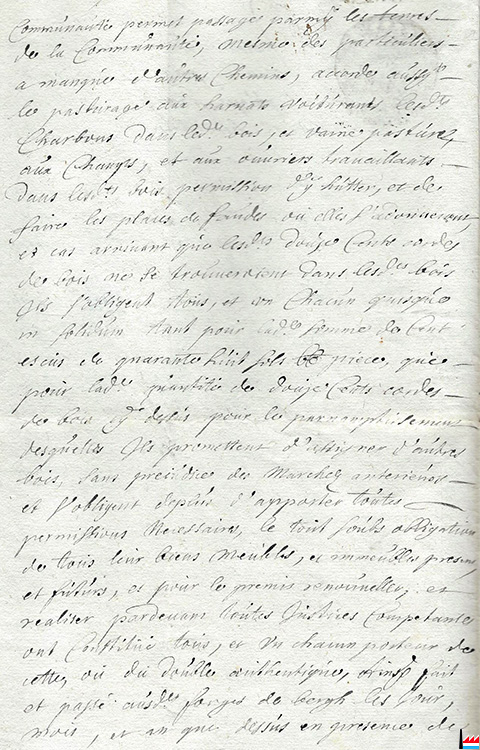 Communauté permis passage parmy les terres
de la Communauté, mesme des particuliers
a manque d'autres Chemins, accorde aussy
le pasturage aux harnats voiturants lesd.ts
Charbons dans lesd.ts bois, et vaine pasture
aux Champs, et aux ouvriers travaillants
Dans lesd.ts bois permission d'y hutter, et de
faire les places de faudes ou elles s'adonneront,
et cas arrivant que lesd.tes douze Cents cordes
de bois ne se trouveroient dans lesd.ts bois
Ils s'obligent tous, et un Chacun quisque
in solidum tant pour lad.te somme de Cent
escus de quarante huit sols piece, que
pour lad.te quantité de douze Cents cordes
de bois cy dessus pour le parraccomplissement
desquelles Ils promettent d'assigner d'autres
bois, sans preiudice des Marchez anterieurs
et s'obligent depuis d'apporter toutes
permissions Necessaires, le tout soubs obligation
de tous leur biens meubles, et immeubles presens,
et futurs, et pour le premis renouveller, et
realiser pardevant toutes Justices competante
ont Constitué tous, et un chacun porteur de
cette, ou du double authentique, ainsy fait
et passé ausd.tes forges de bergh les Jour,
mois, et an que dessus en presence de